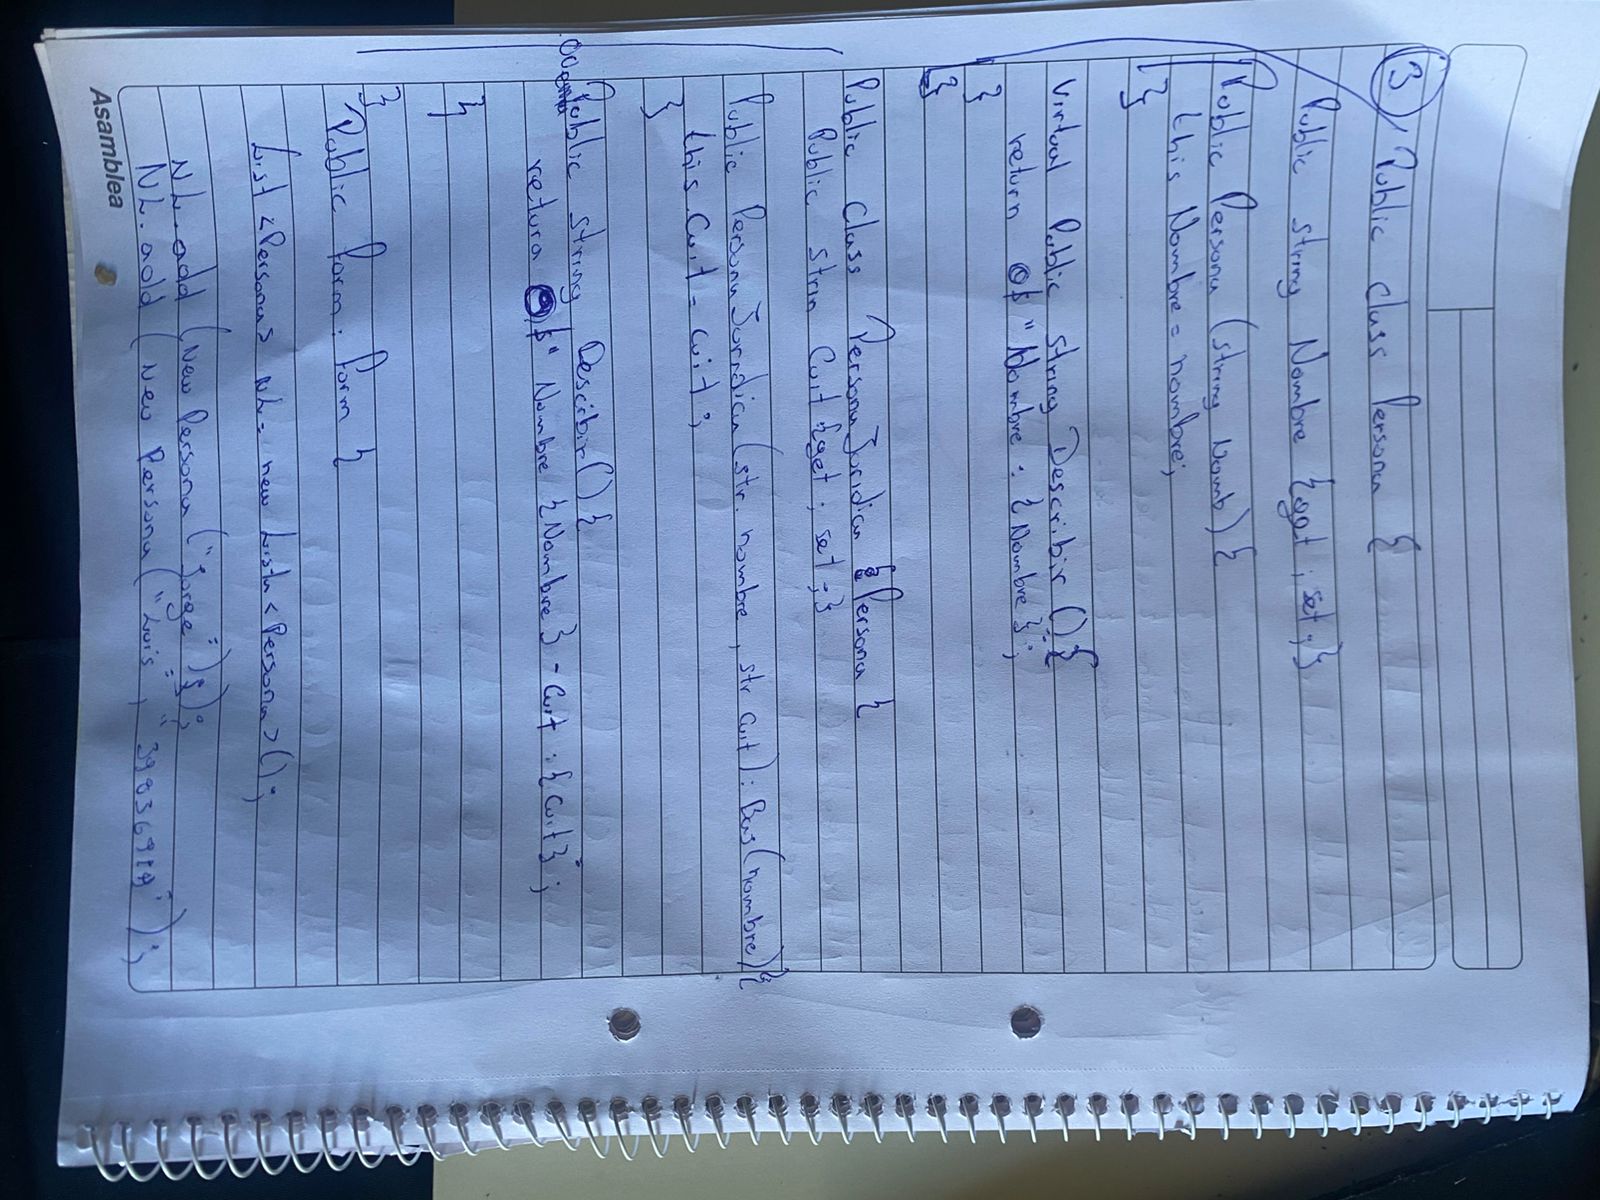 ③ Public class Persona {
Public string Nombre {get; set;}
Public Persona (string Nomb) {
this Nombre = nombre;
}
Virtual Public string Describir () {
return $" Nombre : {Nombre}";
}
}
Public class PersonaJuridica : Persona {
Public strin Cuit {get; set;}
Public PersonaJuridica (str. nombre, str cuit) : Bas(nombre){
this Cuit = cuit;
}
Public string Describir () {
return $" Nombre {Nombre} - Cuit : {cuit}";
}
}
Public form : form {
List <Persona> NL = new Lista <Persona> ();
NL.add (New Persona ("Jorge"));
NL.add (New Persona ("Luis",
Asamblea